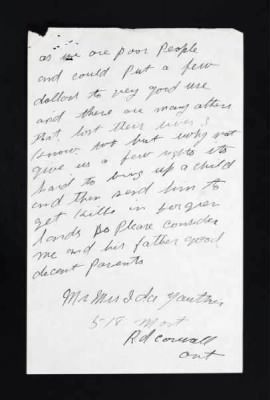 as we are poor People
and could Put a few
dollars to very good use
and there are many others
that lost their lives I
know to but why not
give us a few rights its
hard to bring up a child
and then send him to
get kills in forgien
lands so Please consider
me and his father good
decent Parents
Mr Mrs Ida
518
Rd cornwall
Ont